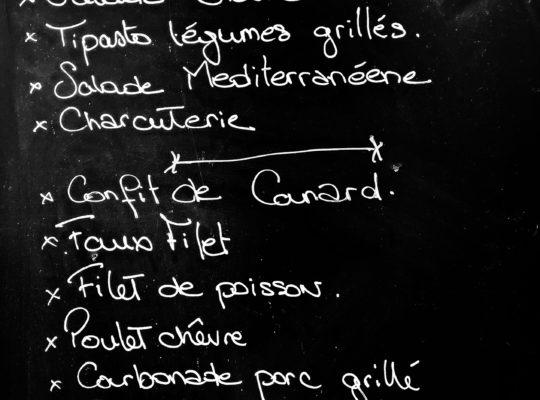 x Tipasto légumes grillés.
x Salade Mediterranéene
x Charcuterie
x Confit de Canard.
x Faux Filet
x Filet de poisson.
x Poulet chêvre
x Carbonade porc grillé